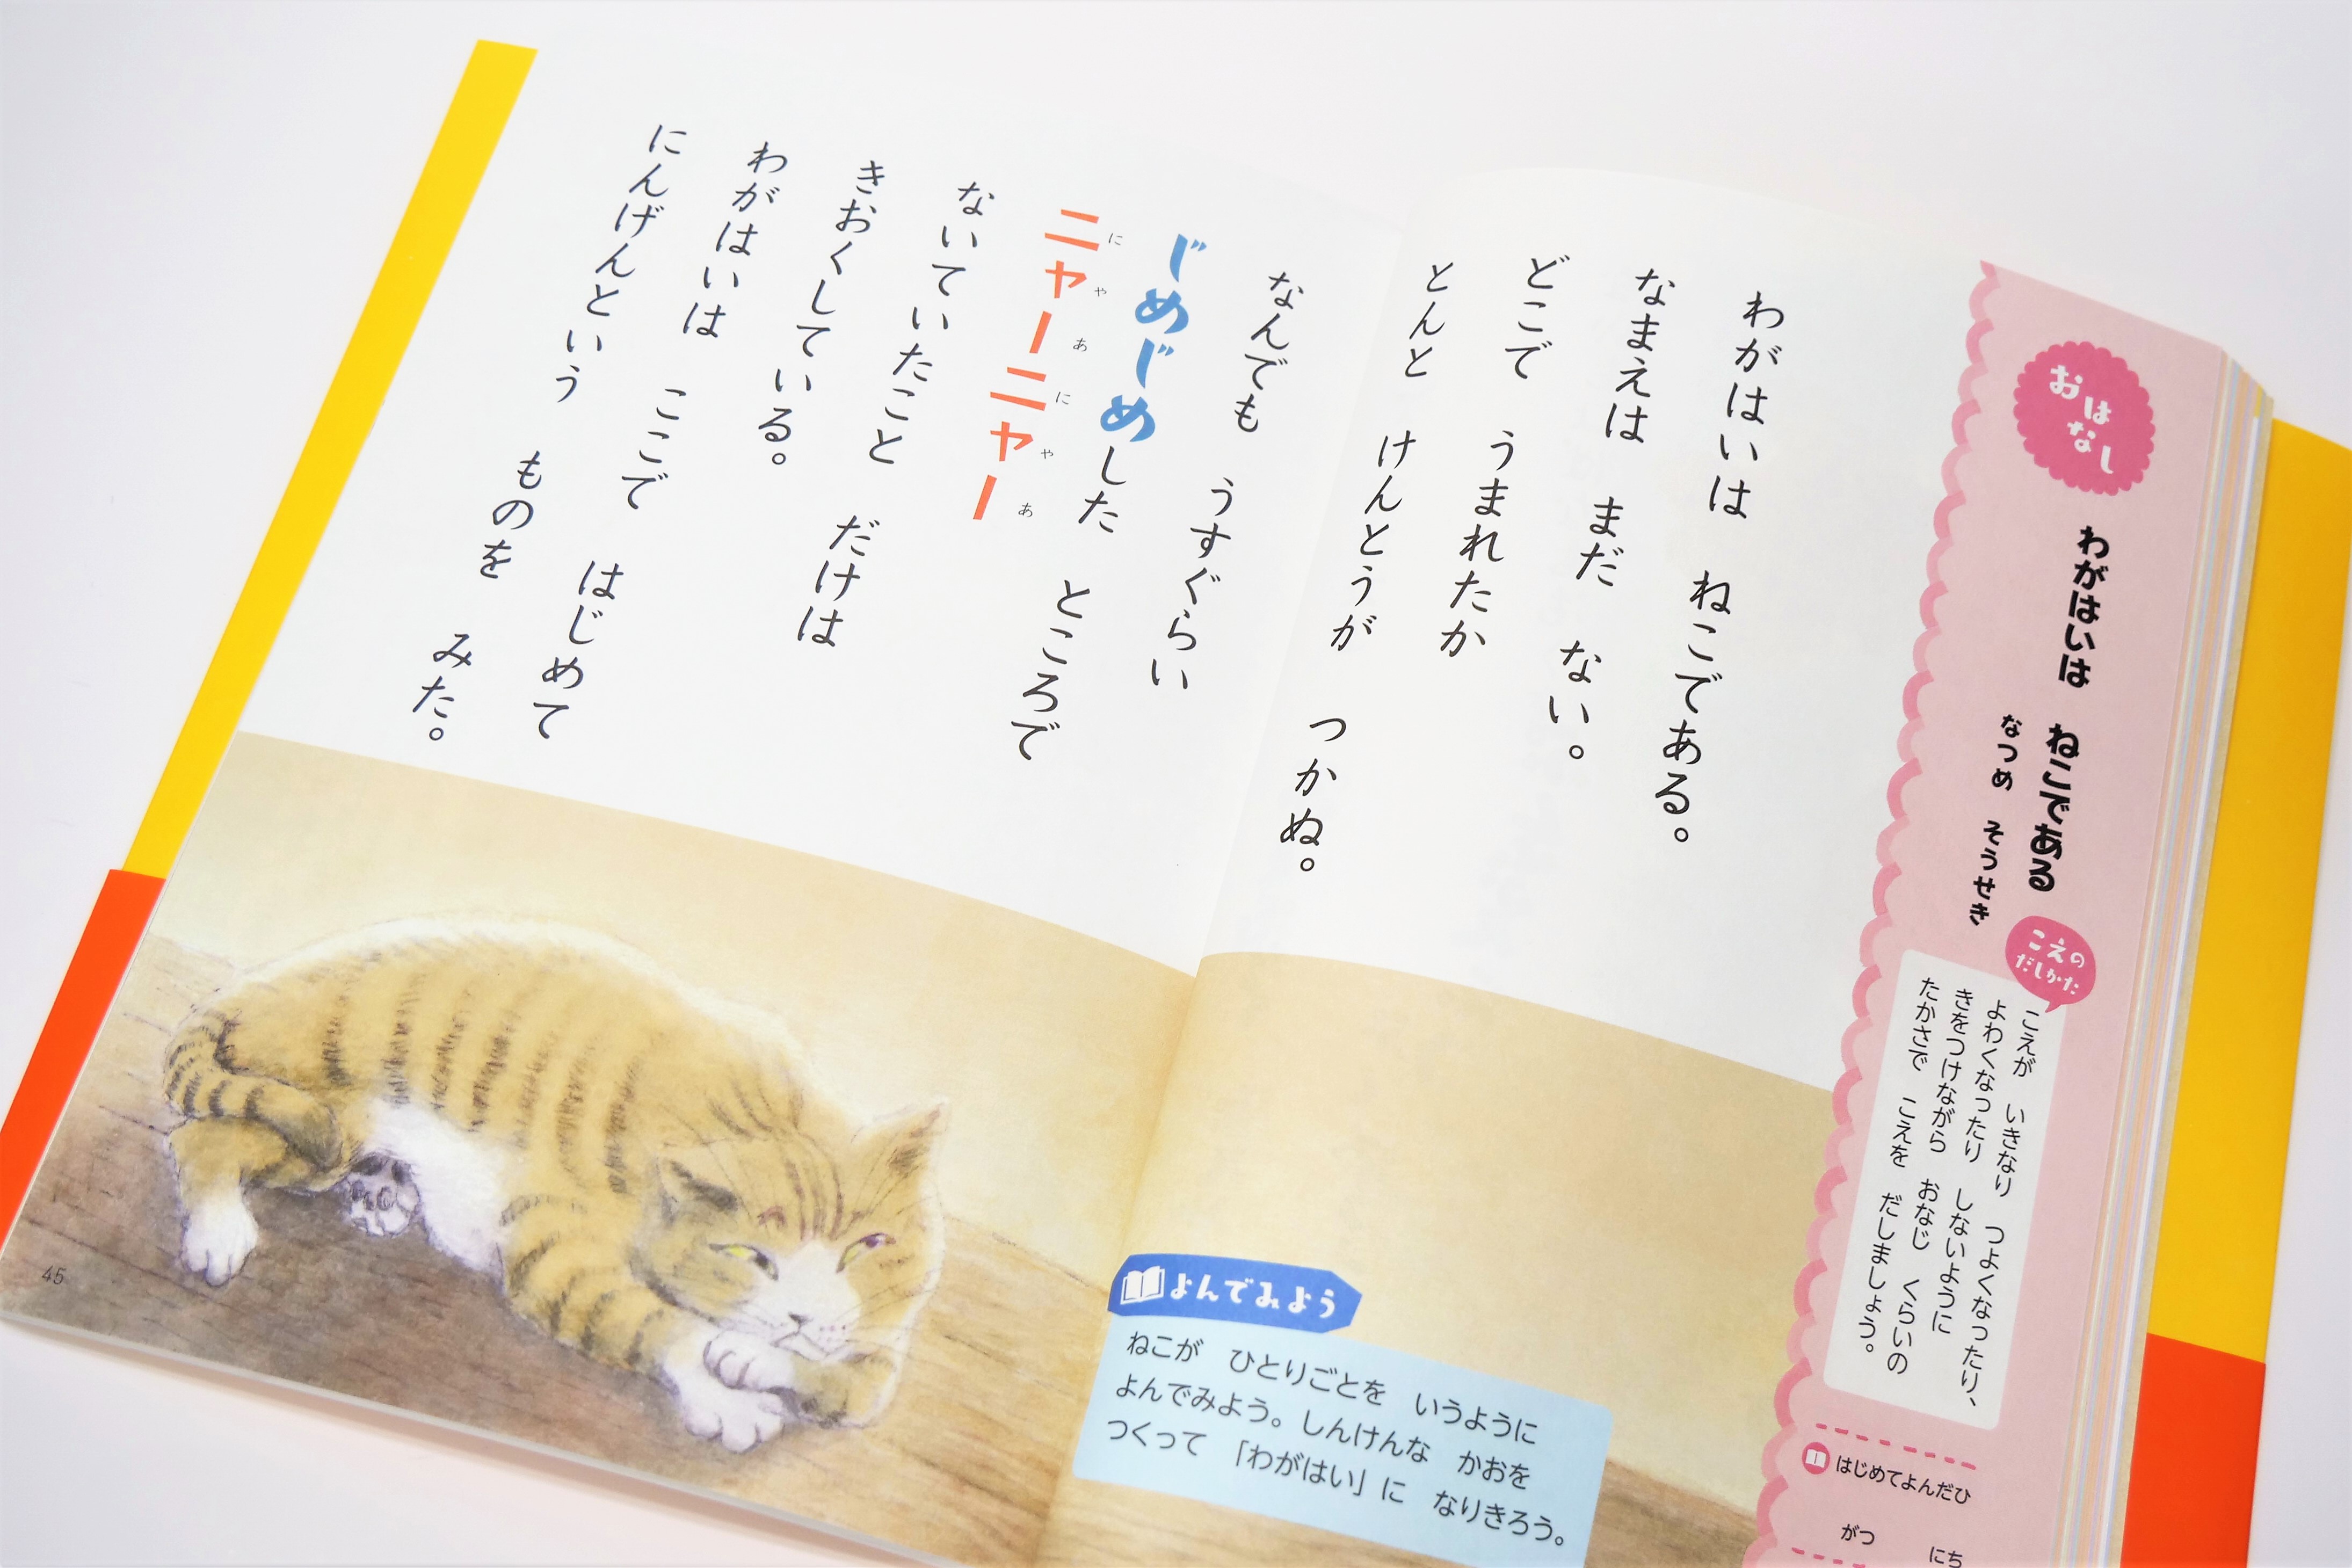 おはなし
わがはいは　ねこである
なつめ　そうせき
こえの
だしかた
こえが　いきなり　つよくなったり、
よわくなったり　しないように
きをつけながら　おなじ　くらいの
たかさで　こえを　だしましょう。
はじめてよんだひ
がつ　にち
わがはいは　ねこである。
なまえは　まだ　ない。
どこで　うまれたか
とんと　けんとうが　つかぬ。
なんでも　うすぐらい
じめじめした　ところで
ニャーニャー
にやあにやあ
ないていたこと　だけは
きおくしている。
わがはいは　ここで　はじめて
にんげんという　ものを　みた。
よんでみよう
ねこが　ひとりごとを　いうように
よんでみよう。しんけんな　かおを
つくって　「わがはい」に　なりきろう。
45